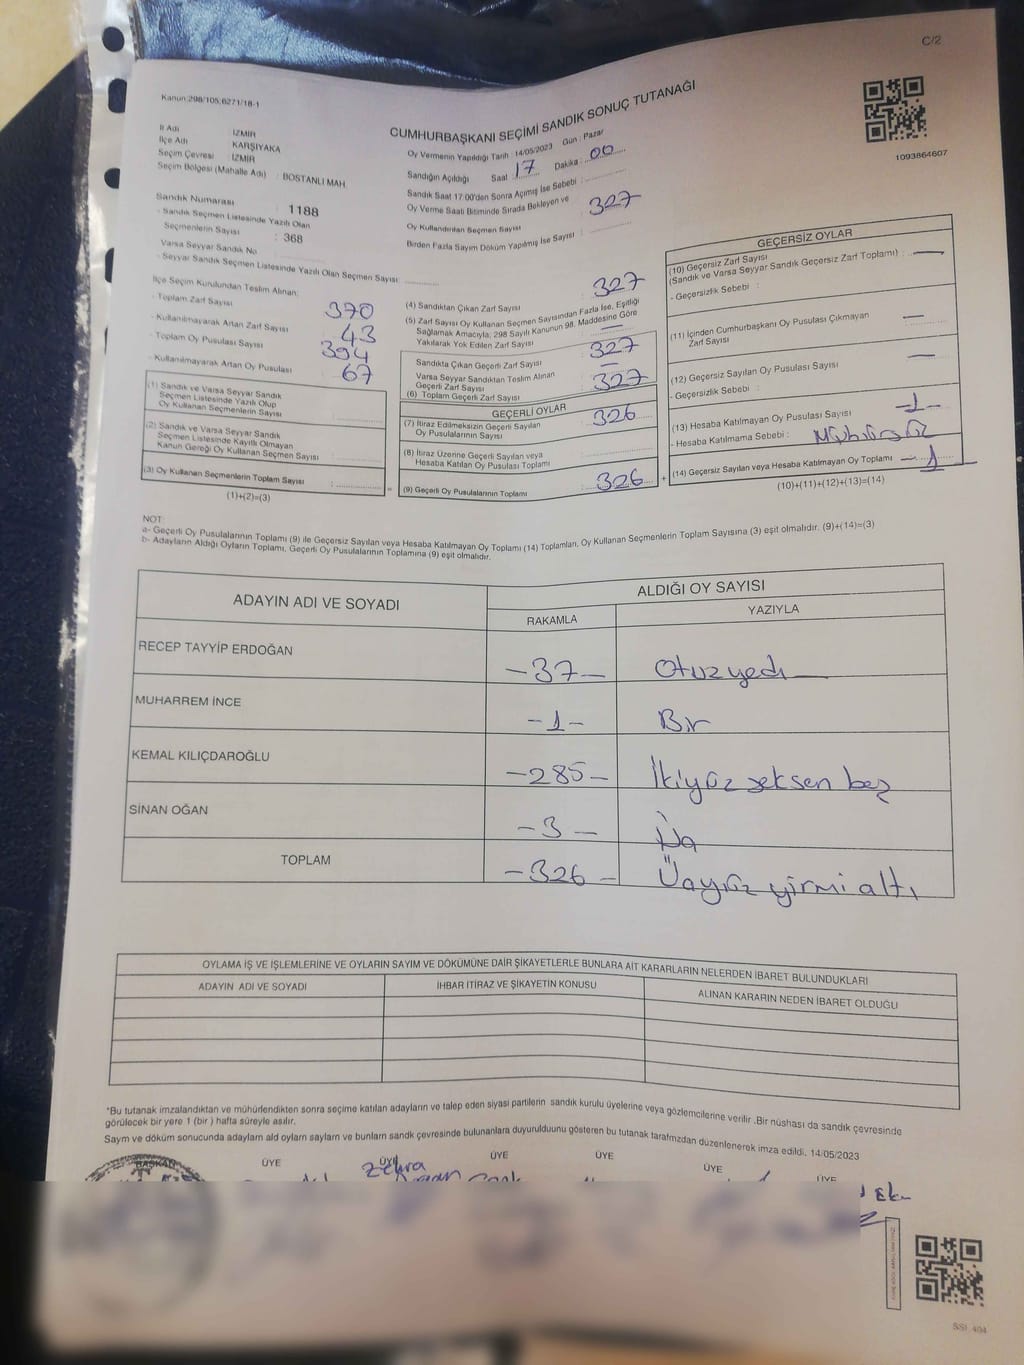 C/2
Kanun:298/105,6271/18-1
CUMHURBAŞKANI SEÇİMİ SANDIK SONUÇ TUTANAĞI
1093864607
İl Adı : İZMİR
İlçe Adı : KARŞIYAKA
Seçim Çevresi : İZMİR
Seçim Bölgesi (Mahalle Adı) : BOSTANLI MAH.
Oy Vermenin Yapıldığı Tarih : 14/05/2023 Gün : Pazar
Sandığın Açıldığı Saat : 17 Dakika : 00
Sandık Saat 17:00'den Sonra Açımış İse Sebebi :
Oy Verme Saati Bitiminde Sırada Bekleyen ve
Oy Kullandırılan Seçmen Sayısı : 327
Birden Fazla Sayım Döküm Yapılmış İse Sayısı :
Sandık Numarası : 1188
- Sandık Seçmen Listesinde Yazılı Olan
Seçmenlerin Sayısı : 368
Varsa Seyyar Sandık No :
- Seyyar Sandık Seçmen Listesinde Yazılı Olan Seçmen Sayısı:
İlçe Seçim Kurulundan Teslim Alınan:
- Toplam Zarf Sayısı 370
- Kullanılmayarak Artan Zarf Sayısı 43
- Toplam Oy Pusulası Sayısı 394
- Kullanılmayarak Artan Oy Pusulası 67
(1) Sandık ve Varsa Seyyar Sandık
Seçmen Listesinde Yazılı Olup
Oy Kullanan Seçmenlerin Sayısı :
(2) Sandık ve Varsa Seyyar Sandık
Seçmen Listesinde Kayıtlı Olmayan
Kanun Gereği Oy Kullanan Seçmen Sayısı :
(3) Oy Kullanan Seçmenlerin Toplam Sayısı :
(1)+(2)=(3)
(4) Sandıktan Çıkan Zarf Sayısı 327
(5) Zarf Sayısı Oy Kullanan Seçmen Sayısından Fazla İse, Eşitliği
Sağlamak Amacıyla, 298 Sayılı Kanunun 98. Maddesine Göre
Yakılarak Yok Edilen Zarf Sayısı —
Sandıkta Çıkan Geçerli Zarf Sayısı 327
Varsa Seyyar Sandıktan Teslim Alınan
Geçerli Zarf Sayısı —
(6) Toplam Geçerli Zarf Sayısı 327
GEÇERLİ OYLAR
(7) İtiraz Edilmeksizin Geçerli Sayılan
Oy Pusulalarının Sayısı 326
(8) İtiraz Üzerine Geçerli Sayılan veya
Hesaba Katılan Oy Pusulası Toplamı :
= (9) Geçerli Oy Pusulalarının Toplamı : 326 +
GEÇERSİZ OYLAR
(10) Geçersiz Zarf Sayısı
(Sandık ve Varsa Seyyar Sandık Geçersiz Zarf Toplamı) : —
- Geçersizlik Sebebi :
(11) İçinden Cumhurbaşkanı Oy Pusulası Çıkmayan
Zarf Sayısı —
(12) Geçersiz Sayılan Oy Pusulası Sayısı —
- Geçersizlik Sebebi :
(13) Hesaba Katılmayan Oy Pusulası Sayısı -1-
- Hesaba Katılmama Sebebi : Mühürsüz
(14) Geçersiz Sayılan veya Hesaba Katılmayan Oy Toplamı — 1
(10)+(11)+(12)+(13)=(14)
NOT:
a- Geçerli Oy Pusulalarının Toplamı (9) ile Geçersiz Sayılan veya Hesaba Katılmayan Oy Toplamı (14) Toplamları, Oy Kullanan Seçmenlerin Toplam Sayısına (3) eşit olmalıdır. (9)+(14)=(3)
b- Adayların Aldığı Oyların Toplamı, Geçerli Oy Pusulalarının Toplamına (9) eşit olmalıdır.
ADAYIN ADI VE SOYADI ALDIĞI OY SAYISI
RAKAMLA YAZIYLA
RECEP TAYYİP ERDOĞAN -37- Otuzyedi
MUHARREM İNCE -1- Bir
KEMAL KILIÇDAROĞLU -285- İkiyüz seksen beş
SİNAN OĞAN -3- Üç
TOPLAM -326- Üçyüz yirmi altı
OYLAMA İŞ VE İŞLEMLERİNE VE OYLARIN SAYIM VE DÖKÜMÜNE DAİR ŞİKAYETLERLE BUNLARA AİT KARARLARIN NELERDEN İBARET BULUNDUKLARI
ADAYIN ADI VE SOYADI İHBAR İTİRAZ VE ŞİKAYETİN KONUSU ALINAN KARARIN NEDEN İBARET OLDUĞU
*Bu tutanak imzalandıktan ve mühürlendikten sonra seçime katılan adayların ve talep eden siyasi partilerin sandık kurulu üyelerine veya gözlemcilerine verilir .Bir nüshası da sandık çevresinde
görülecek bir yere 1 (bir ) hafta süreyle asılır.
Sayım ve döküm sonucunda adaylarn ald oylarn saylarn ve bunlarn sandk çevresinde bulunanlara duyurulduunu gösteren bu tutanak tarafmzdan düzenlenerek imza edildi. 14/05/2023
BAŞKAN ÜYE ÜYE ÜYE ÜYE ÜYE ÜYE
Zehra
SSI 404